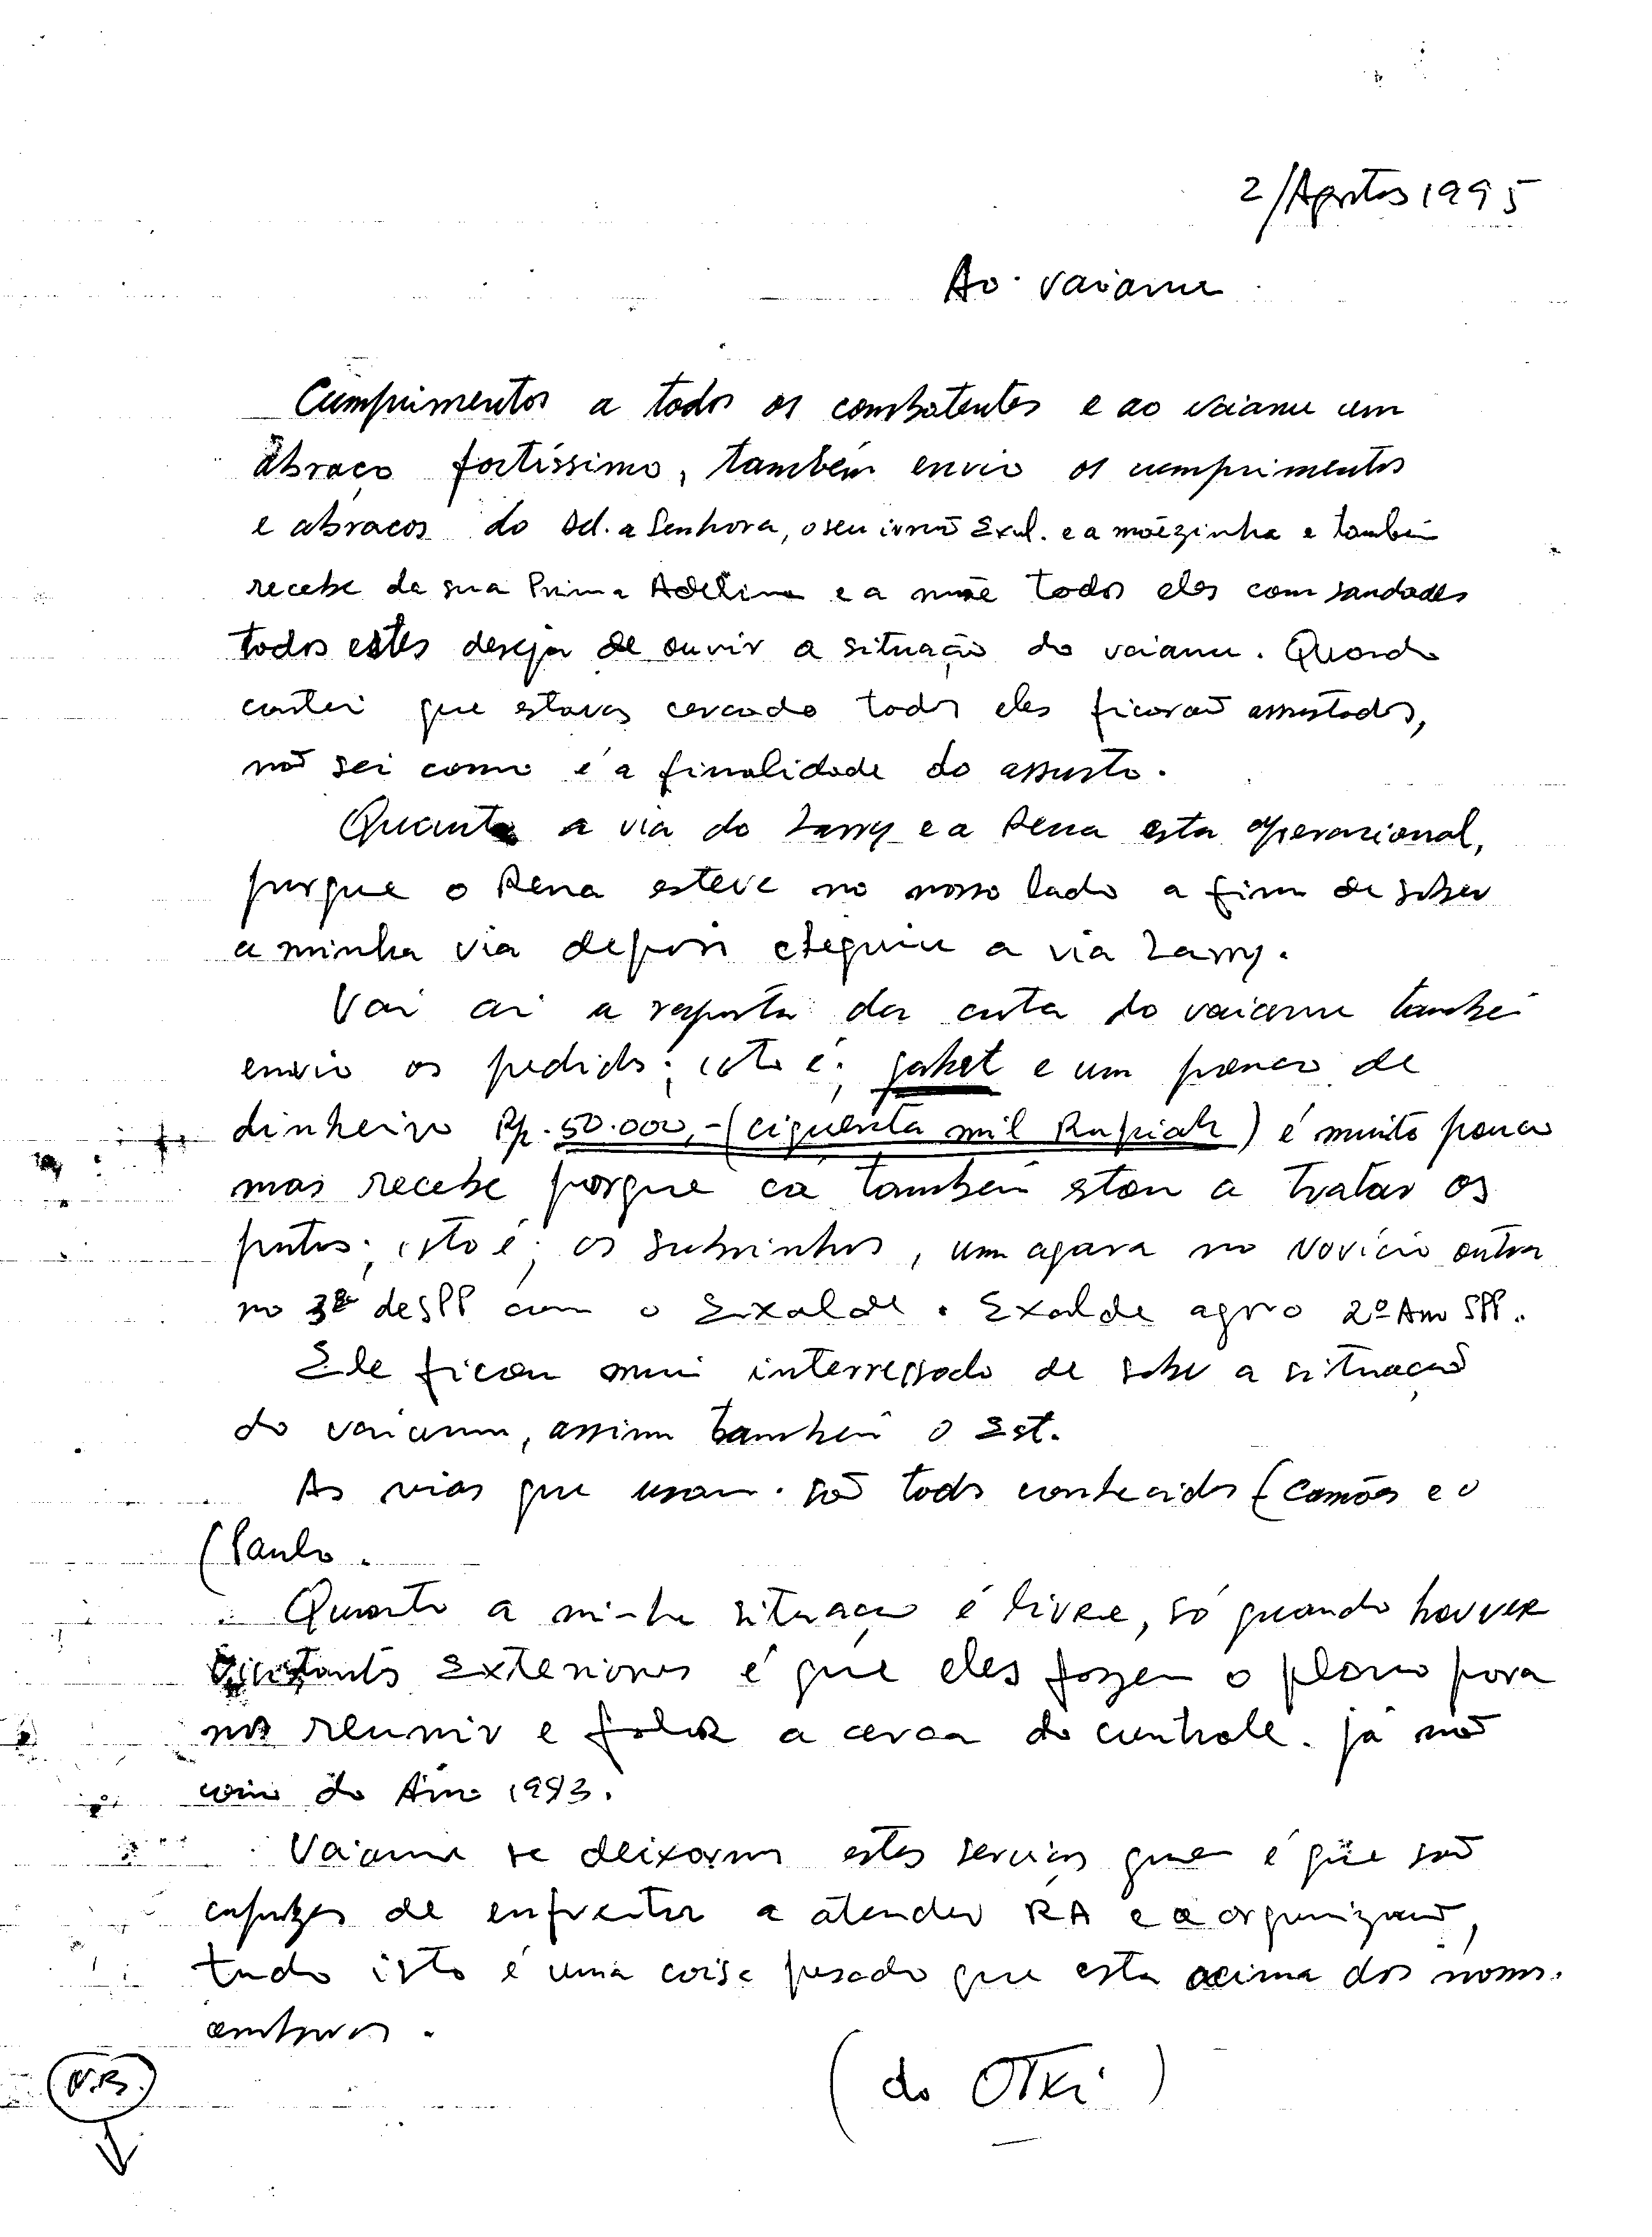 2/Agostos 1995
Ao vaianu
Cumprimentos a todos os combatentes e ao vaianu um
abraço fortíssimo, também envio os cumprimentos
e abraços do Ad. a Senhora, o seu irmão Exal. e a mãezinha e também
recebe da sua Prima Adelina e a mãe todos eles com saudades
todos estes deseja de ouvir a situação do vaianu. Quando
contei que estavas cercado todos eles ficarão assustados,
não sei como é a finalidade do assusto.
Quanto a via do Larry e a Rena esta operacional,
purque o Rena esteve no nosso lado a fim de saber
a minha via depois a via Larry.
Vai ai a resposta da carta do vaianu também
envio os pedidos; isto é; jaket e um pouco de
dinheiro Rp. 50.000,-(ciquenta mil Rupiah) é muito pouco
mas recebe porque cá também estou a tratar os
putos; isto é; os subrinhos, um agora no Novício outro
no 3º de SPP com o Eixalde. Exalde agro 2º Ano SPP.
Ele ficou mui interressado de saber a situação
do vaianu, assim também o Est.
As vias que usam. são todos conhecidos (Camões e o
(Paulo.
Quanto a minha situação é livre, só quando houver
visitantes Exteriores é que eles fazem o plano para
nos reunir e falar a cerca do controle. já não
como do Ano 1993.
Vaianu se deixarmos estes serviços quem é que são
capazes de enfrentar a atender RA e a organização,
tudo isto é uma coisa pesado que esta acima dos nossos.
ombros.
(do OTKi)
N.B.